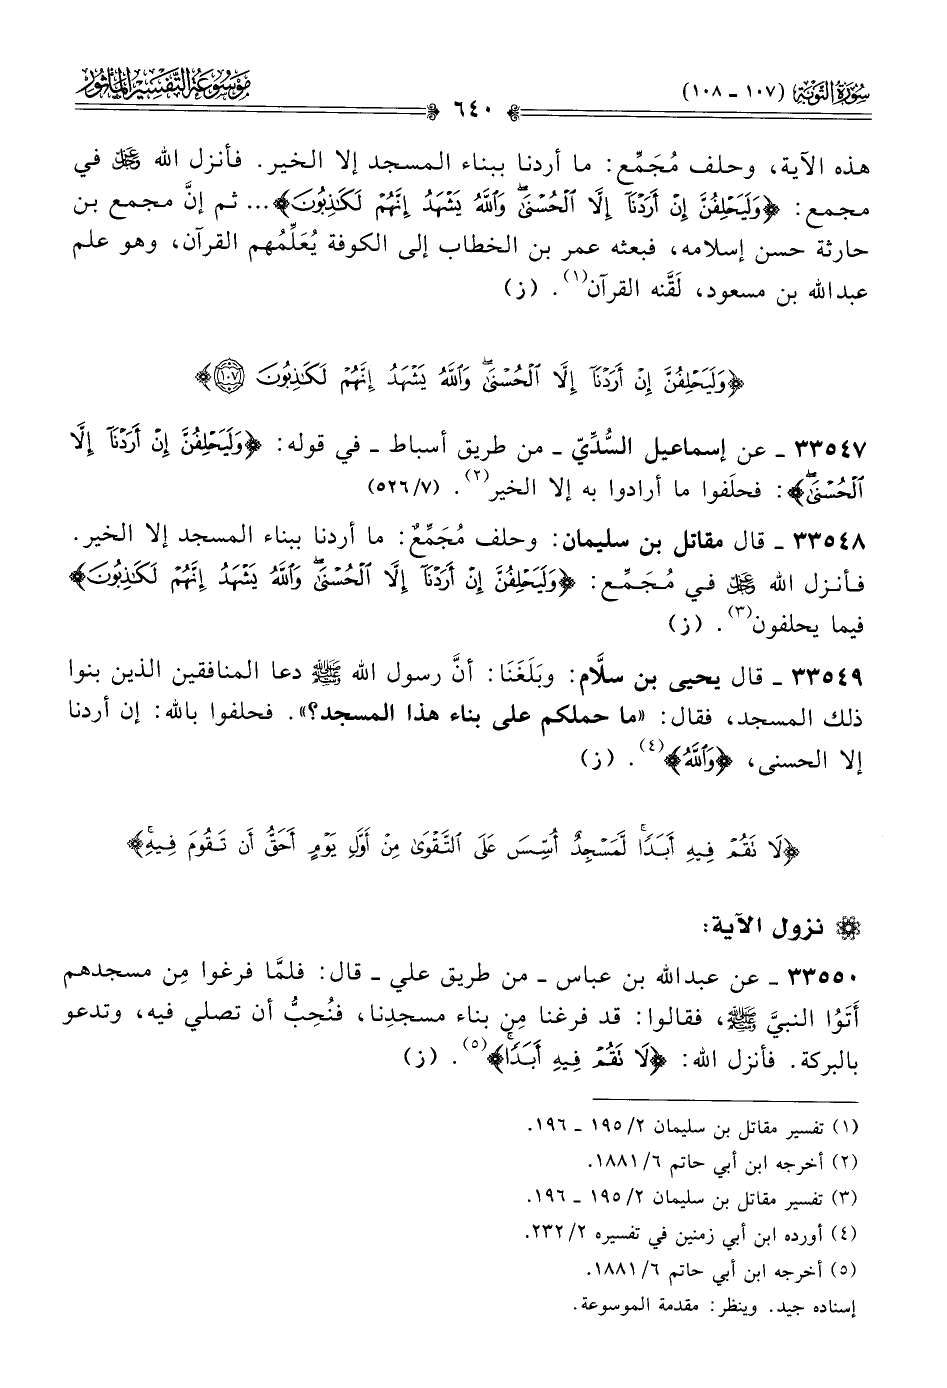 سُورَةُ التَّوْبَةِ (١٠٧ ـ ١٠٨)
٦٤٠
مَوْسُوعَةُ التَّفْسِيرِ المَأْثُورِ
هذه الآية، وحلف مُجَمِّع: ما أردنا ببناء المسجد إلا الخير. فأنزل الله ﷿ في
مجمع: ﴿وَلَيَحْلِفُنَّ إِنْ أَرَدْنَآ إِلَّا ٱلْحُسْنَىٰۖ وَٱللَّهُ يَشْهَدُ إِنَّهُمْ لَكَٰذِبُونَ﴾... ثم إنَّ مجمع بن
حارثة حسن إسلامه، فبعثه عمر بن الخطاب إلى الكوفة يُعَلِّمُهم القرآن، وهو علم
عبدالله بن مسعود، لَقَّنه القرآن(١). (ز)
﴿وَلَيَحْلِفُنَّ إِنْ أَرَدْنَآ إِلَّا ٱلْحُسْنَىٰۖ وَٱللَّهُ يَشْهَدُ إِنَّهُمْ لَكَٰذِبُونَ ١٠٧﴾
٣٣٥٤٧ ـ عن إسماعيل السُّدِّيّ ـ من طريق أسباط ـ في قوله: ﴿وَلَيَحْلِفُنَّ إِنْ أَرَدْنَآ إِلَّا
ٱلْحُسْنَىٰۖ﴾: فحلَفوا ما أرادوا به إلا الخير(٢). (٥٢٦/٧)
٣٣٥٤٨ ـ قال مقاتل بن سليمان: وحلف مُجَمِّعٌ: ما أردنا ببناء المسجد إلا الخير.
فأنزل الله ﷿ في مُجَمِّع: ﴿وَلَيَحْلِفُنَّ إِنْ أَرَدْنَآ إِلَّا ٱلْحُسْنَىٰۖ وَٱللَّهُ يَشْهَدُ إِنَّهُمْ لَكَٰذِبُونَ﴾
فيما يحلفون(٣). (ز)
٣٣٥٤٩ ـ قال يحيى بن سلَّام: وبَلَغَنَا: أنَّ رسول الله ﷺ دعا المنافقين الذين بنوا
ذلك المسجد، فقال: «ما حملكم على بناء هذا المسجد؟». فحلفوا بالله: إن أردنا
إلا الحسنى، ﴿وَٱللَّهُ﴾(٤). (ز)
﴿لَا تَقُمْ فِيهِ أَبَدًاۚ لَّمَسْجِدٌ أُسِّسَ عَلَى ٱلتَّقْوَىٰ مِنْ أَوَّلِ يَوْمٍ أَحَقُّ أَن تَقُومَ فِيهِۚ﴾
نزول الآية:
٣٣٥٥٠ ـ عن عبدالله بن عباس ـ من طريق علي ـ قال: فلمَّا فرغوا مِن مسجدهم
أَتَوُا النبيَّ ﷺ، فقالوا: قد فرغنا مِن بناء مسجدِنا، فنُحِبُّ أن تصلي فيه، وتدعو
بالبركة. فأنزل الله: ﴿لَا تَقُمْ فِيهِ أَبَدًاۚ﴾(٥). (ز)
(١) تفسير مقاتل بن سليمان ١٩٥/٢ ـ ١٩٦.
(٢) أخرجه ابن أبي حاتم ١٨٨١/٦.
(٣) تفسير مقاتل بن سليمان ١٩٥/٢ ـ ١٩٦.
(٤) أورده ابن أبي زمنين في تفسيره ٢٣٢/٢.
(٥) أخرجه ابن أبي حاتم ١٨٨١/٦.
إسناده جيد. وينظر: مقدمة الموسوعة.